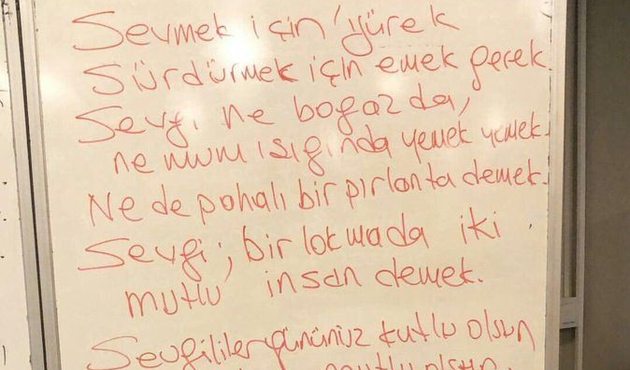 Sevmek için yürek
Sürdürmek için emek gerek.
Sevgi ne bogazda,
ne mum ışığında yemek yemek.
Ne de pahalı bir pırlanta demek.
Sevgi; bir lokmada iki
mutlu insan demek.
Sevgililer gününüz kutlu olsun
mutlu olsun.